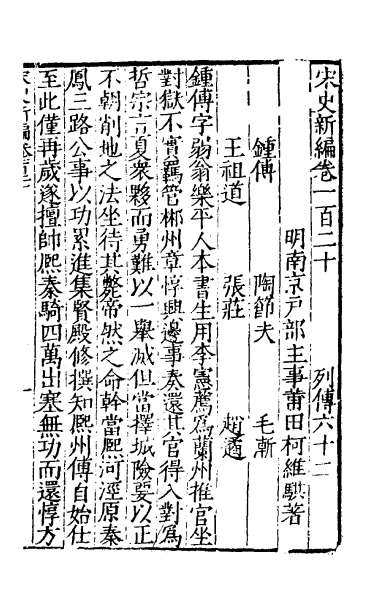 宋史新編卷一百二十　列傳六十二
明南京戸部主事莆田柯維騏著
鍾傅　陶節夫　毛漸
王祖道　張莊　趙遹
鍾傅字弱翁樂平人本書生用李憲薦爲蘭州推官坐
對獄不實羈管郴州章惇興邊事奏還其官得入對爲
哲宗言夏衆夥而勇難以一舉滅但當擇城險要以正
不朝削地之法坐待其斃帝然之命幹當熙河涇原秦
鳳三路公事以功累進集賢殿修撰知熙州傅自始仕
至此僅再歲遂擅帥熙秦騎四萬出塞無功而還惇方